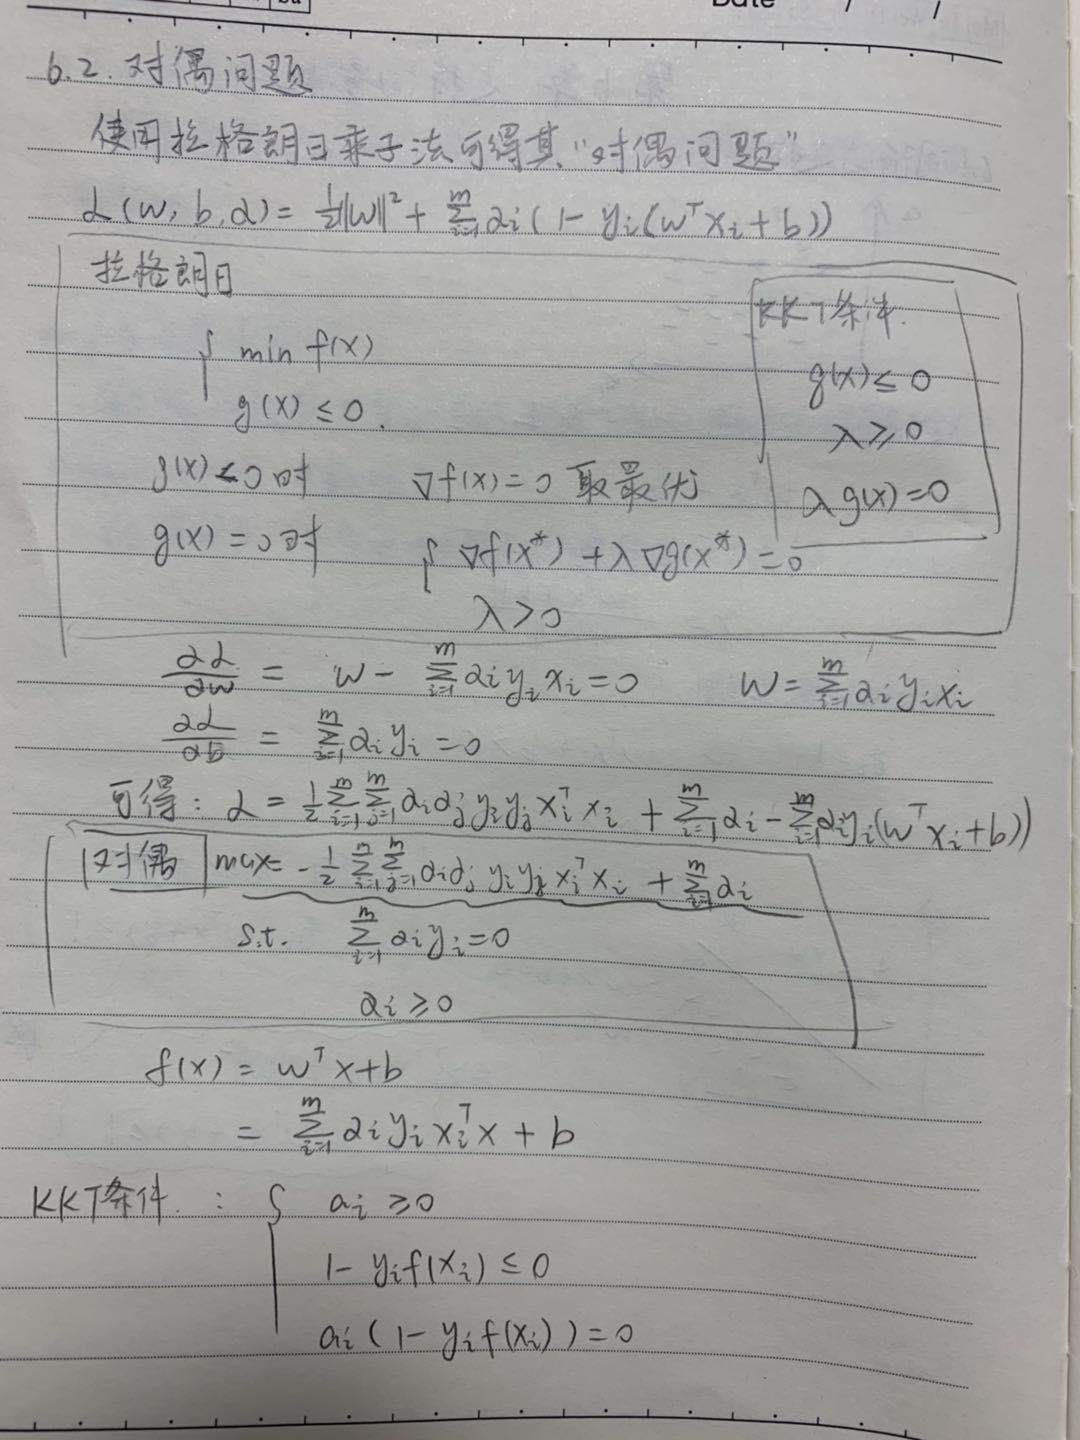 Date / /
6.2. 对偶问题
使用拉格朗日乘子法可得其“对偶问题”
L(w, b, α) = ½||w||² + Σᵢ₌₁ᵐ αᵢ(1 - yᵢ(wᵀxᵢ + b))
拉格朗日
{ min f(x)
g(x) ≤ 0.
g(x) < 0 时 ∇f(x) = 0 取最优
g(x) = 0 时 { ∇f(x*) + λ∇g(x*) = 0
λ > 0
KKT条件.
g(x) ≤ 0
λ ≥ 0
λg(x) = 0
∂L/∂w = w - Σᵢ₌₁ᵐ αᵢyᵢxᵢ = 0 w = Σᵢ₌₁ᵐ αᵢyᵢxᵢ
∂L/∂b = Σᵢ₌₁ᵐ αᵢyᵢ = 0
可得: L = ½ Σᵢ₌₁ᵐ Σⱼ₌₁ᵐ αᵢαⱼyᵢyⱼxᵢᵀxᵢ + Σᵢ₌₁ᵐ αᵢ - Σᵢ₌₁ᵐ αᵢyᵢ(wᵀxᵢ + b))
对偶 max = -½ Σᵢ₌₁ᵐ Σⱼ₌₁ᵐ αᵢαⱼ yᵢyⱼ xᵢᵀxᵢ + Σᵢ₌₁ᵐ αᵢ
s.t. Σᵢ₌₁ᵐ αᵢyᵢ = 0
αᵢ ≥ 0
f(x) = wᵀx + b
= Σᵢ₌₁ᵐ αᵢyᵢxᵢᵀx + b
KKT条件: { aᵢ ≥ 0
1 - yᵢf(xᵢ) ≤ 0
aᵢ(1 - yᵢf(xᵢ)) = 0